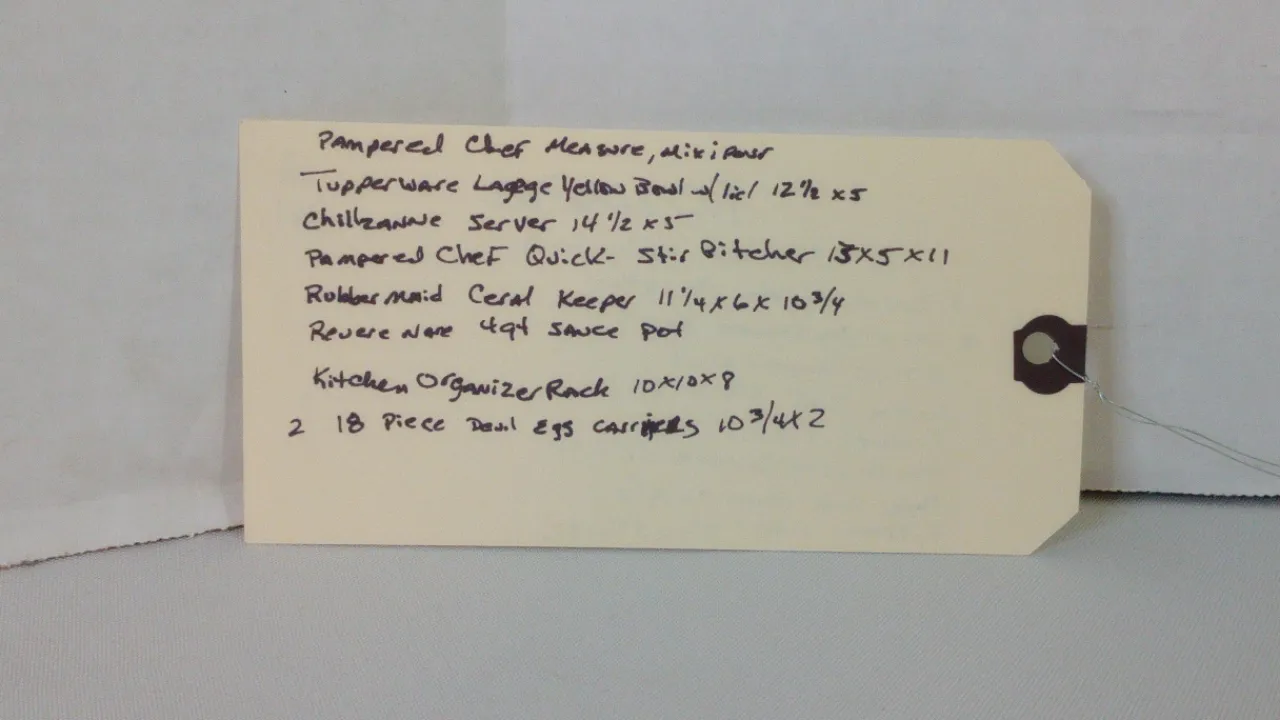 Pampered Chef Measure, Mix i Pour
Tupperware Lagege Yellow Bowl w/ lid 12 1/2 x 5
Chillzanne Server 14 1/2 x 5
Pampered Chef Quick- Stir Pitcher 13 x 5 x 11
Rubbermaid Ceral Keeper 11 1/4 x 6 x 10 3/4
Revere Ware 4qt Sauce Pot
Kitchen Organizer Rack 10 x 10 x 8
2 18 Piece Devil Egs Carriers 10 3/4 x 2